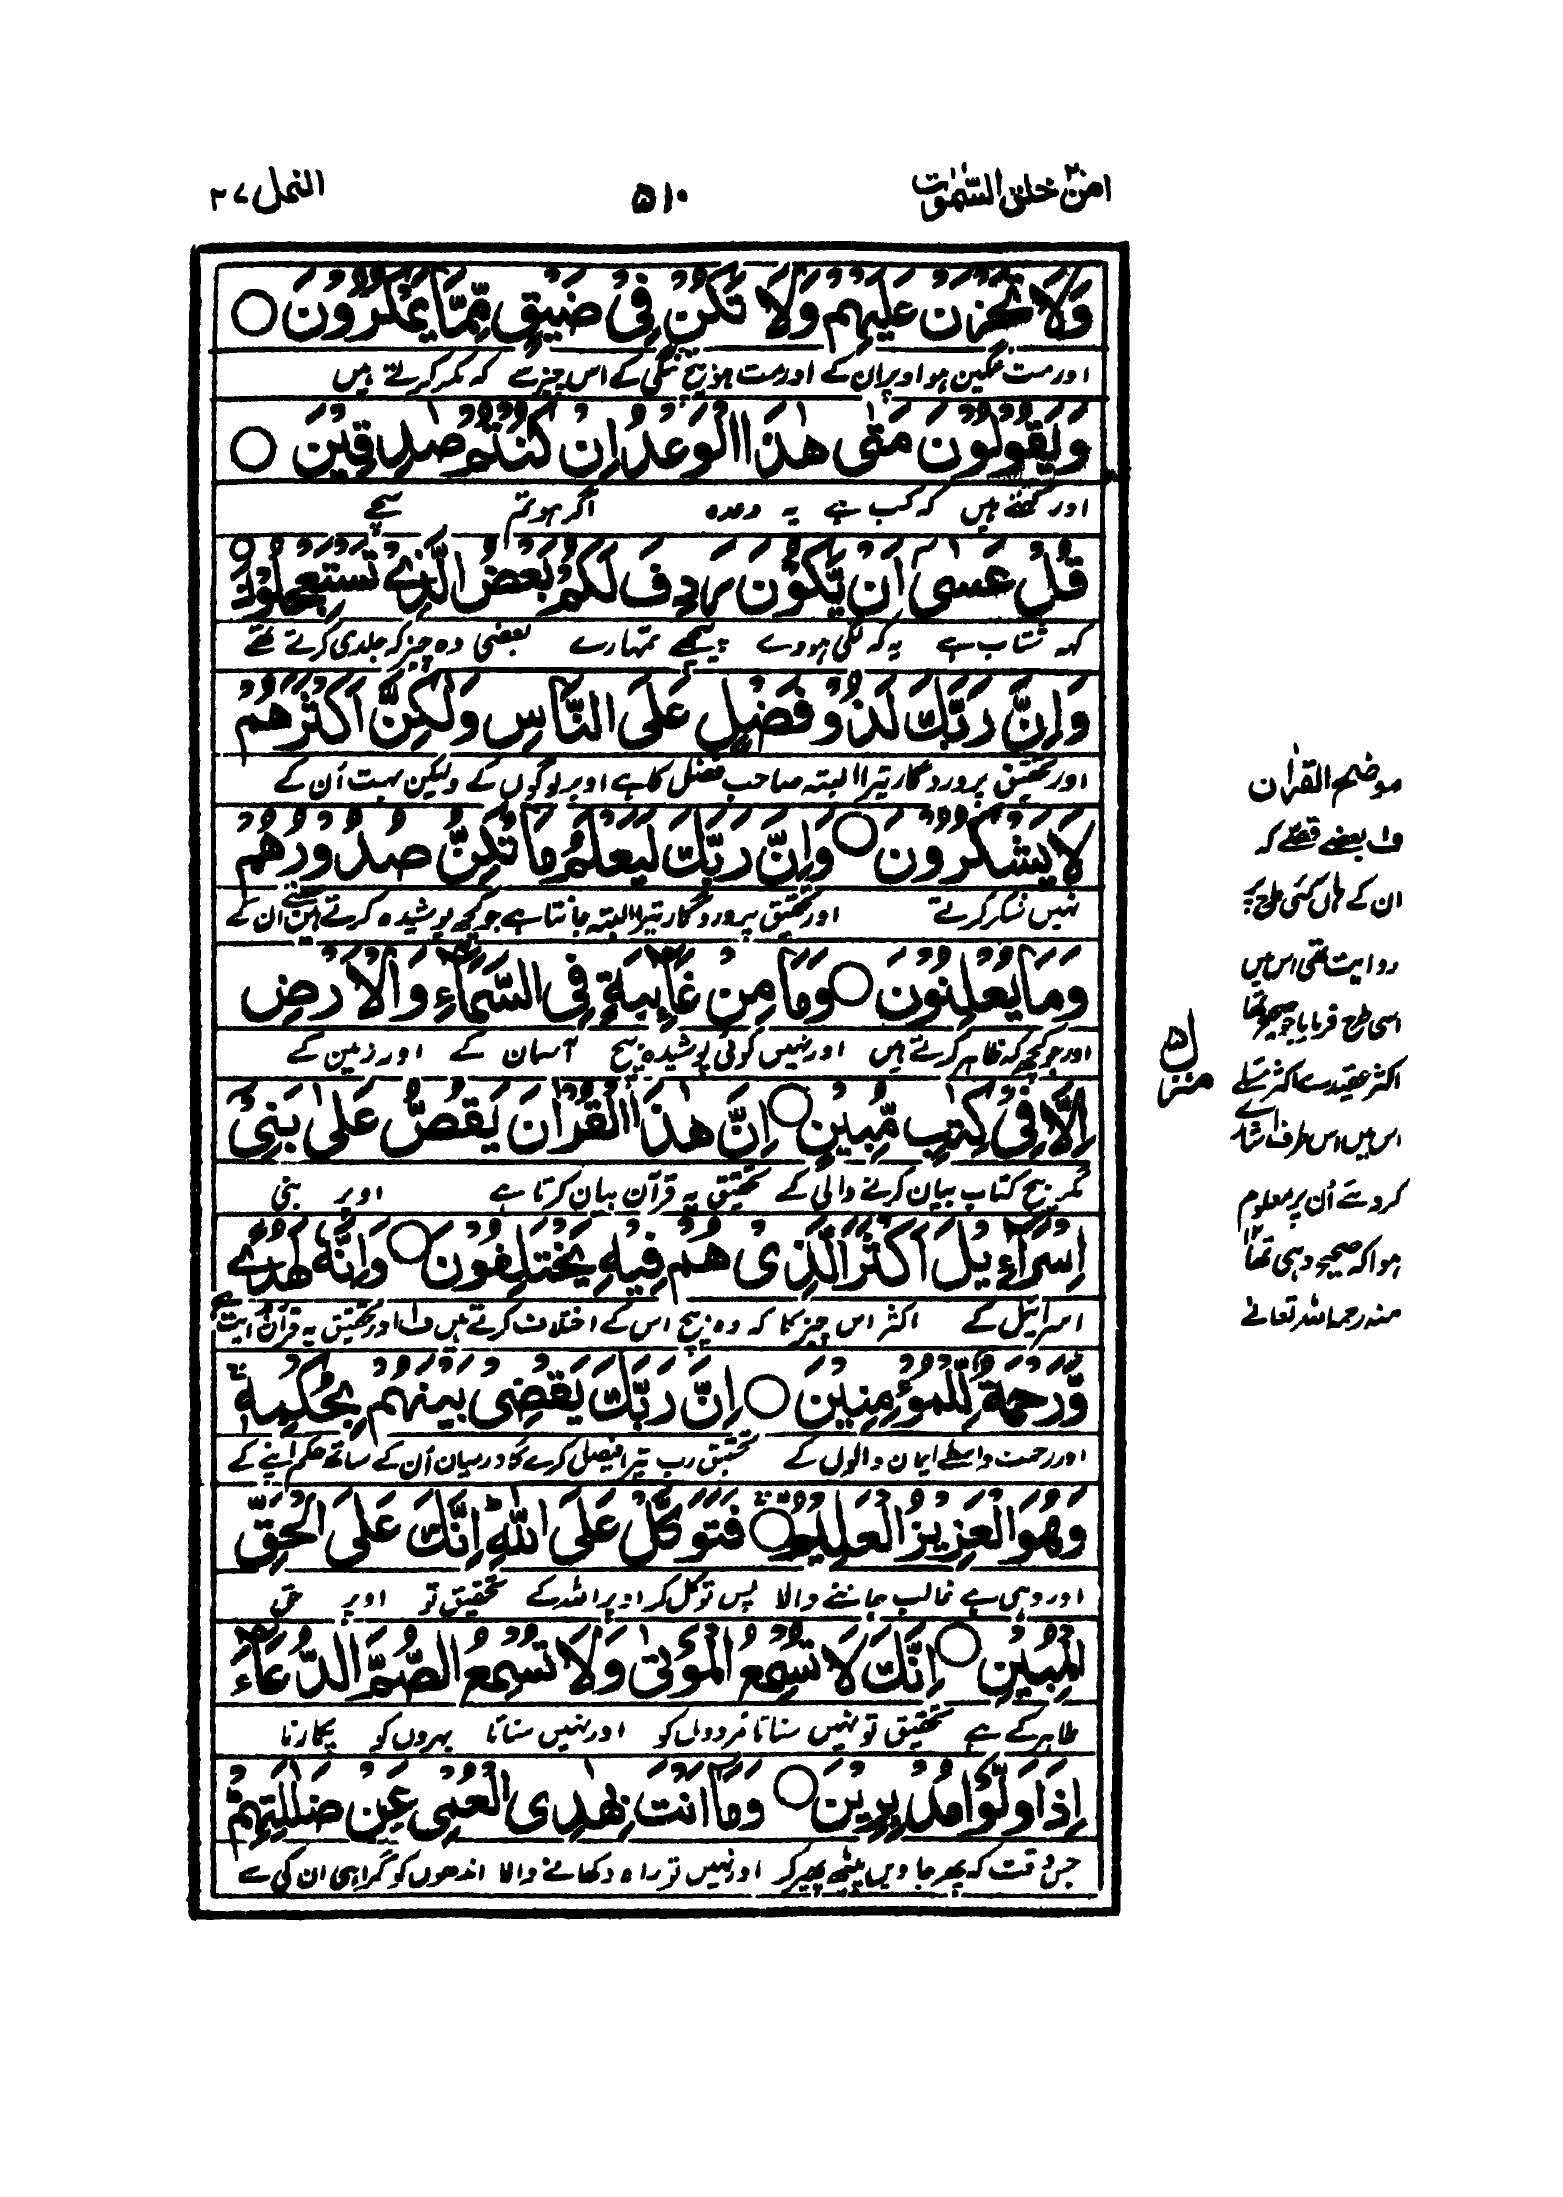 امن خلق السّمٰوٰت ۲۰
۵۱۰
النمل ۲۷
وَلَا تَحْزَنْ عَلَيْهِمْ وَلَا تَكُنْ فِىْ ضَيْقٍ مِّمَّا يَمْكُرُوْنَ ○
اور مت غمگین ہو اوپر ان کے اور مت ہو بیچ تنگی کے اس چیز سے کہ مکر کرتے ہیں
وَيَقُوْلُوْنَ مَتٰى هٰذَا الْوَعْدُ اِنْ كُنْتُمْ صٰدِقِيْنَ ○
اور کہتے ہیں کہ کب ہے یہ وعدہ اگر ہو تم سچے
قُلْ عَسٰىٓ اَنْ يَّكُوْنَ رَدِفَ لَكُمْ بَعْضُ الَّذِىْ تَسْتَعْجِلُوْنَ ○
کہہ شتاب ہے یہ کہ لگی ہووے پیچھے تمہارے بعضی وہ چیز کہ جلدی کرتے تھے
وَاِنَّ رَبَّكَ لَذُوْ فَضْلٍ عَلَى النَّاسِ وَلٰكِنَّ اَكْثَرَهُمْ
اور تحقیق پروردگار تیرا البتہ صاحب فضل کا ہے اوپر لوگوں کے ولیکن بہت اُن کے
لَا يَشْكُرُوْنَ ○ وَاِنَّ رَبَّكَ لَيَعْلَمُ مَا تُكِنُّ صُدُوْرُهُمْ
نہیں شکر کرتے اور تحقیق پروردگار تیرا البتہ جانتا ہے جو کچھ پوشیدہ کرتے ہیں سینے ان کے
وَمَا يُعْلِنُوْنَ ○ وَمَا مِنْ غَآئِبَةٍ فِى السَّمَآءِ وَالْاَرْضِ
اور جو کچھ کہ ظاہر کرتے ہیں اور نہیں کوئی پوشیدہ بیچ آسمان کے اور زمین کے
اِلَّا فِىْ كِتٰبٍ مُّبِيْنٍ ○ اِنَّ هٰذَا الْقُرْاٰنَ يَقُصُّ عَلٰى بَنِىْٓ
مگر بیچ کتاب بیان کرنے والی کے تحقیق یہ قرآن بیان کرتا ہے اوپر بنی
اِسْرَآءِيْلَ اَكْثَرَ الَّذِىْ هُمْ فِيْهِ يَخْتَلِفُوْنَ ○ وَاِنَّهٗ لَهُدًى
اسرائیل کے اکثر اس چیز کا کہ وہ بیچ اس کے اختلاف کرتے ہیں ف۱ اور تحقیق یہ قرآن ہدایت ہے
وَّرَحْمَةٌ لِّلْمُؤْمِنِيْنَ ○ اِنَّ رَبَّكَ يَقْضِىْ بَيْنَهُمْ بِحُكْمِهٖ ۚ
اور رحمت واسطے ایمان والوں کے تحقیق رب تیرا فیصل کرے گا درمیان اُن کے ساتھ حکم اپنے کے
وَهُوَ الْعَزِيْزُ الْعَلِيْمُ ۚ○ فَتَوَكَّلْ عَلَى اللّٰهِ ؕ اِنَّكَ عَلَى الْحَقِّ
اور وہی ہے غالب جاننے والا پس توکل کر اوپر اللہ کے تحقیق تو اوپر حق
الْمُبِيْنِ ○ اِنَّكَ لَا تُسْمِعُ الْمَوْتٰى وَلَا تُسْمِعُ الصُّمَّ الدُّعَآءَ
ظاہر کے ہے تحقیق تو نہیں سناتا مُردوں کو اور نہیں سناتا بہروں کو پکارنا
اِذَا وَلَّوْا مُدْبِرِيْنَ ○ وَمَآ اَنْتَ بِهٰدِى الْعُمْىِ عَنْ ضَلٰلَتِهِمْ
جس وقت کہ پھر جاویں پیٹھ پھیر کر اور نہیں تو راہ دکھانے والا اندھوں کو گمراہی ان کی سے
موضح القرآن
ف۱ بعضے قصّے کہ
ان کے ہاں کئی طرح پر
روایت تھی اس میں
اسی طرح فرمایا جو صحیح تھا
اکثر عقیدے اکثر مسئلے
اس میں اس طرف اشارے
کردئے اُن پر معلوم
ہوا کہ صحیح وہی تھا ۱۲
منہ رحمہ اللہ تعالےٰ
منزل ۵